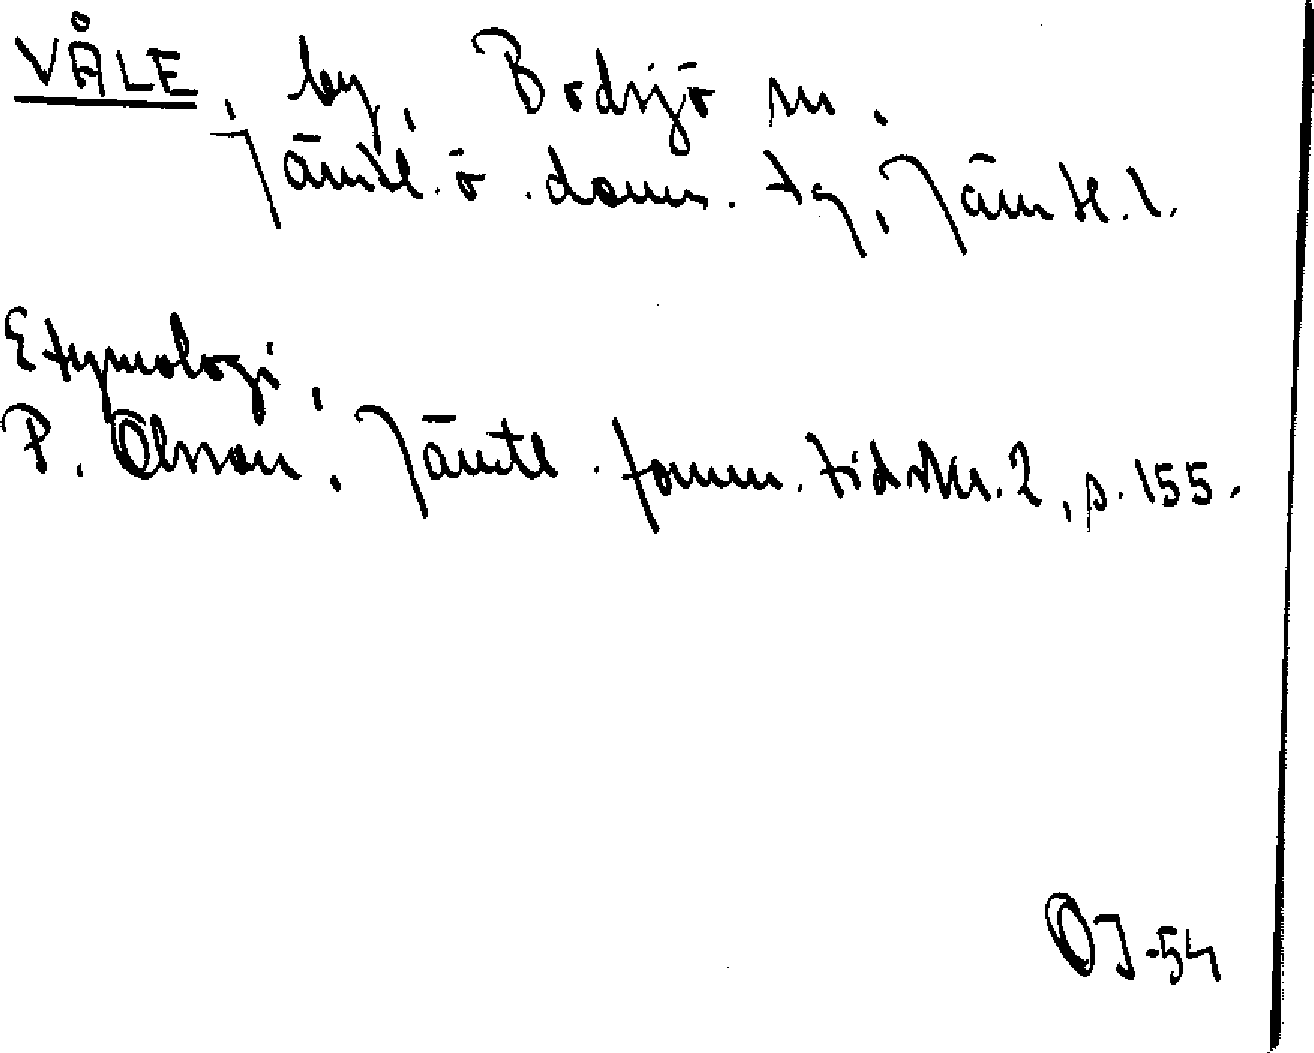 VÅLE, by, Bodsjö sn,
Jämtl. ö. doms. tg, Jämtl. l.
Etymologi,
P. Olsson, Jämtl. fornm. tidskr. 2, s. 155.
OJ-54